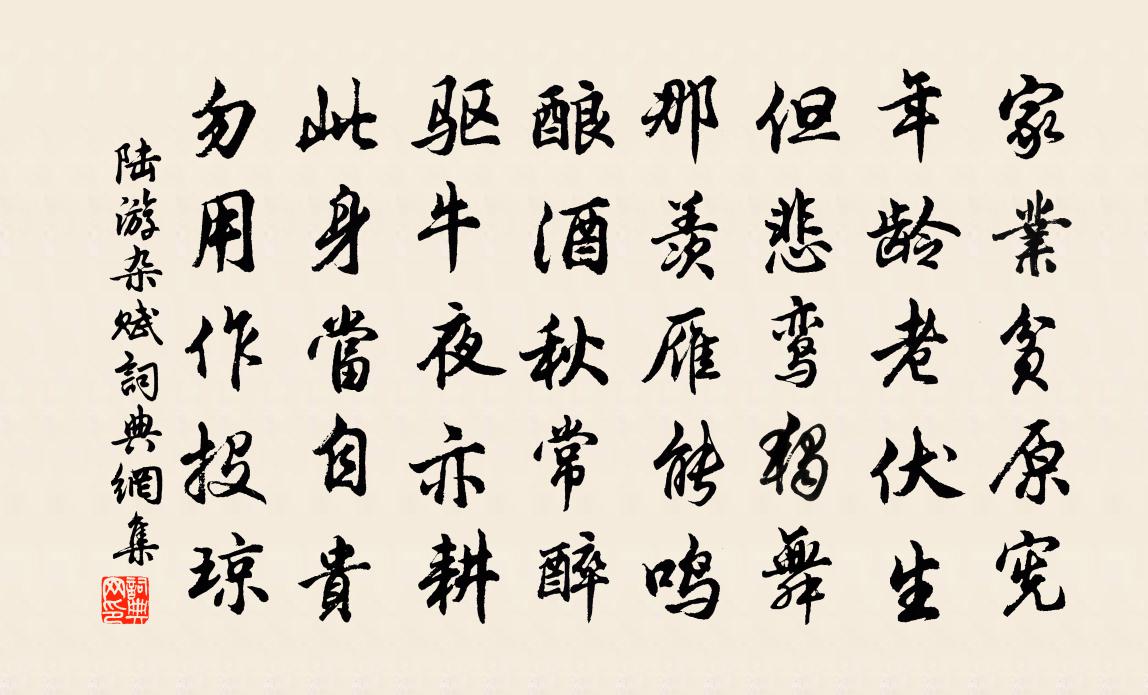 家業贫原宪
年龄老伏生
但悲鸾獨舞
那羡雁能鸣
酿酒秋常醉
驱牛夜亦耕
此身當自貴
勿用作投琼
陆游杂赋詞典網集
詞典网印